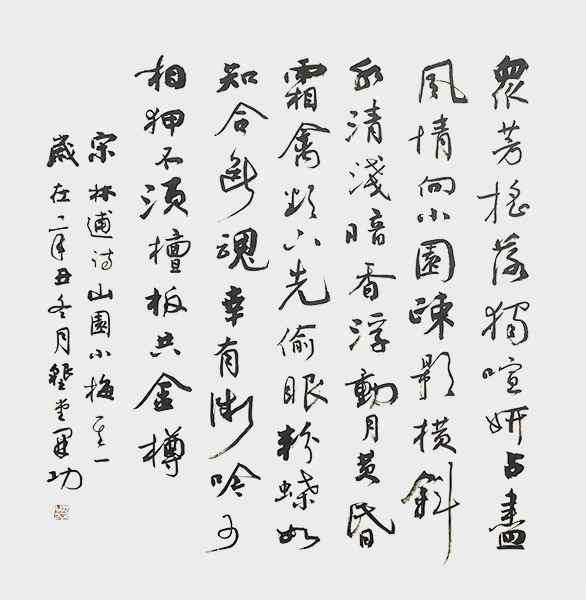 眾芳搖落獨喧妍占盡
風情向小園疎影橫斜
水清淺暗香浮動月黃昏
霜禽欲下先偷眼粉蝶如
知合斷魂幸有微吟可
相狎不須檀板共金樽
宋林逋詩山園小梅其一
歲在辛丑冬月